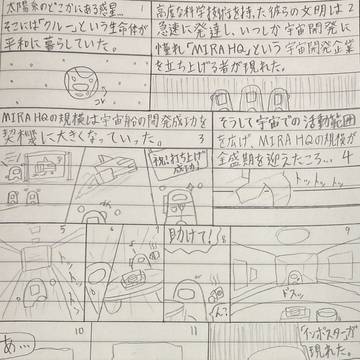 太陽系のどこかにある惑星…
そこには「クルー」という生命体が
平和に暮らしていた。
コレ
高度な科学技術を持った彼らの文明は 2
急速に発達し、いつしか宇宙開発に
憧れ「MIRA HQ」という宇宙開発企業
を立ち上げる者が現れた。
MIRA HQの規模は宇宙船の開発成功を
契機に大きくなっていった。 3
祝!打ち上げ
成功!
そうして宇宙での活動範囲
を広げ、MIRA HQの規模が
全盛期を迎えたころ… 4
トットットッ
5
6
7
助けて!
8
ん?
9
ドスッ
10
あ…
11
インポスターが
現れた。